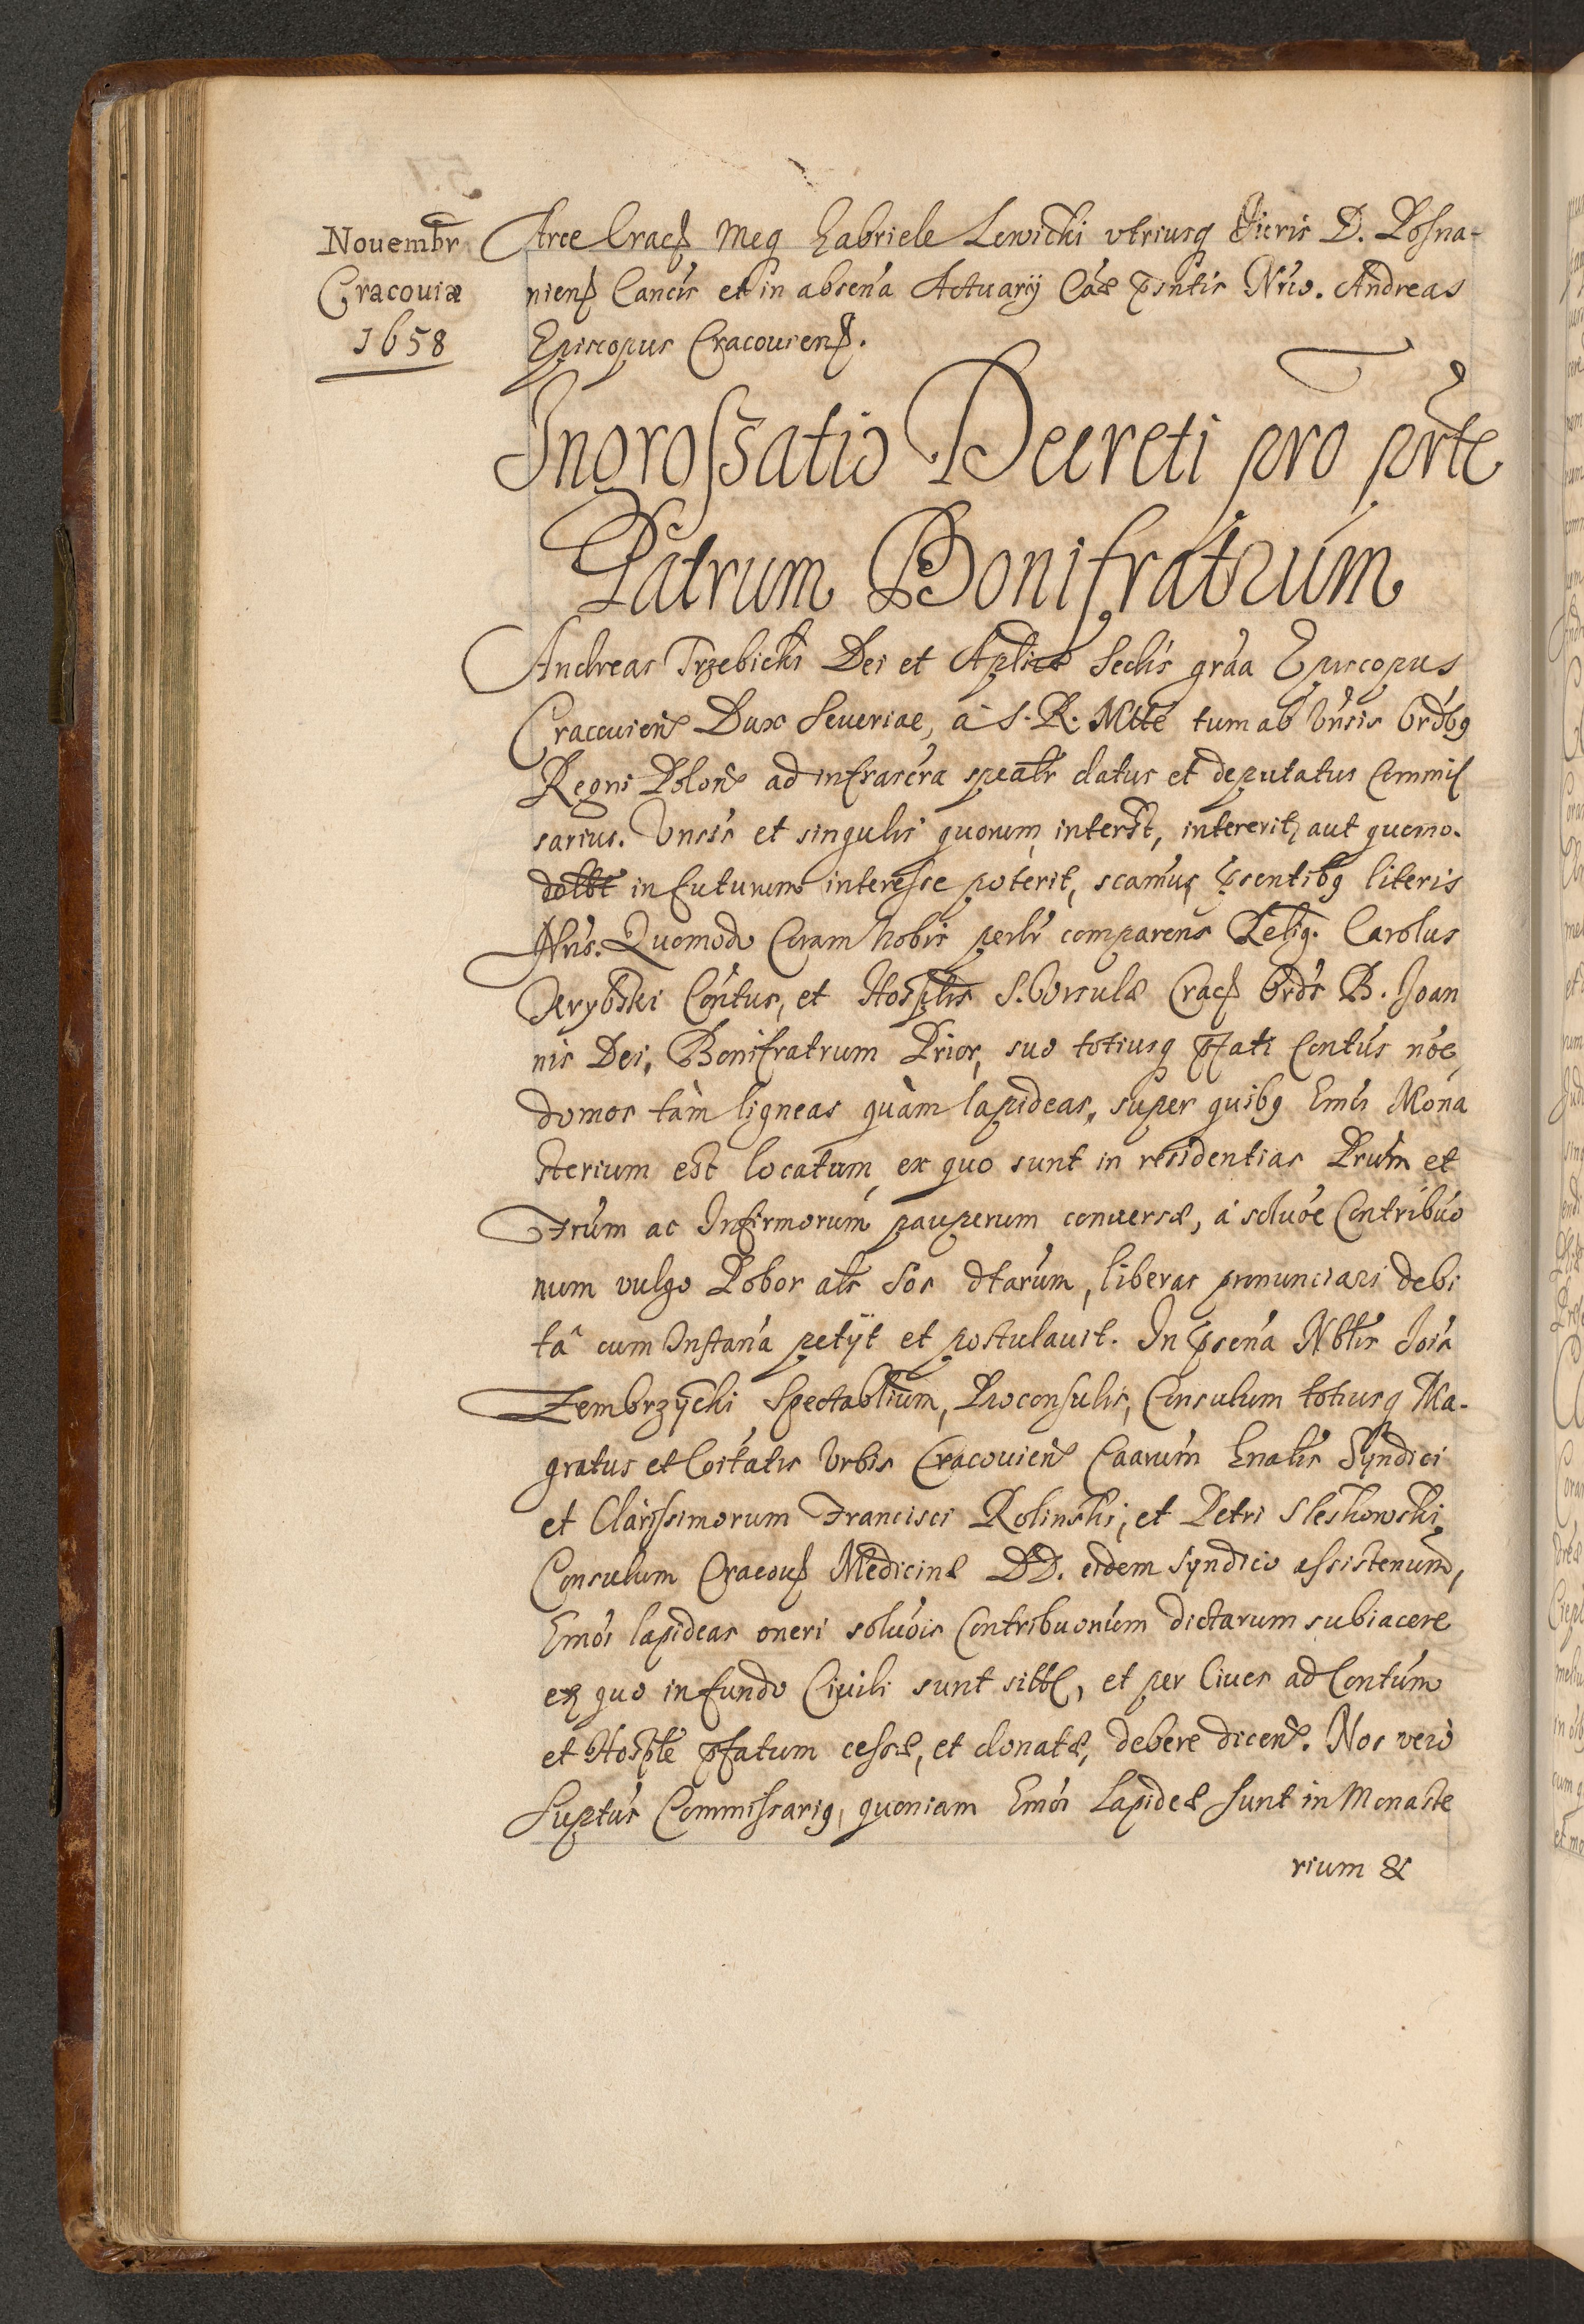 Nouembr
Cracouiæ
1658
Arce Cracß Meg Gabriele Lewicki vtriusq Dieris D. Posna-
nienß Cancis et in absena Actuarij Cáæ psntis Nrio. Andreas
Episcopus Cracouienß.
Ingroſsatio Decreti pro prte
Patrum Bonifratrum
Andreas Trzebicki Dei et Aplicæ Sedis gráa Episcopus
Cracouien Dux Seueriae, à S. R. Mtte tum ab Vnsis Ordbq
Regni Polon ad infrascra spealr datus et deputatus Commiſ
sarius. Vnsis et singulis quorum interst, intererit, aut quomo-
dolbt in futurum interesse poterit, scamus psentibq literis
Nris. Quomodo Coram Nobis perlr comparens Relig. Carolus
Arybski Contus, et Hosptis S. Vrsulæ Cracß Ords B. Joan
nis Dei, Bonifratrum Prior, suo totiusq pfati Contus nóe,
domos tàm ligneas quàm lapideas, super quibq Emis Mona
sterium est locatum, ex quo sunt in residentias Prum et
Frum ac Infirmorum pauperum conuersæ, á soluóe Contribuó
num vulgo Pobor als Sos dtarum, liberas pronunciari debi
tâ cum Instana petijt et postulauit. In psena Nbtis Jois
Zembrzycki Spectablium, Proconsulis, Consulum totiusq Ma-
gratus et Coitatis Vrbis Cracouien Caarum Gnalis Syndici
et Clarissimorum Francisci Rolinski, et Petri Sleskowski,
Consulum Cracouß Medicinæ DD. eidem Syndico assistenum,
Emói lapideas oneri soluóis Contribuonum dictarum subiacere
ex quo in fundo Ciuili sunt sitæ, et per Ciues ad Contum
et Hosple pfatum cessæ, et donatæ, debere dicen. Nos verò
Suptus Commissariq, quoniam Emói Lapideæ sunt in Monaste
rium &